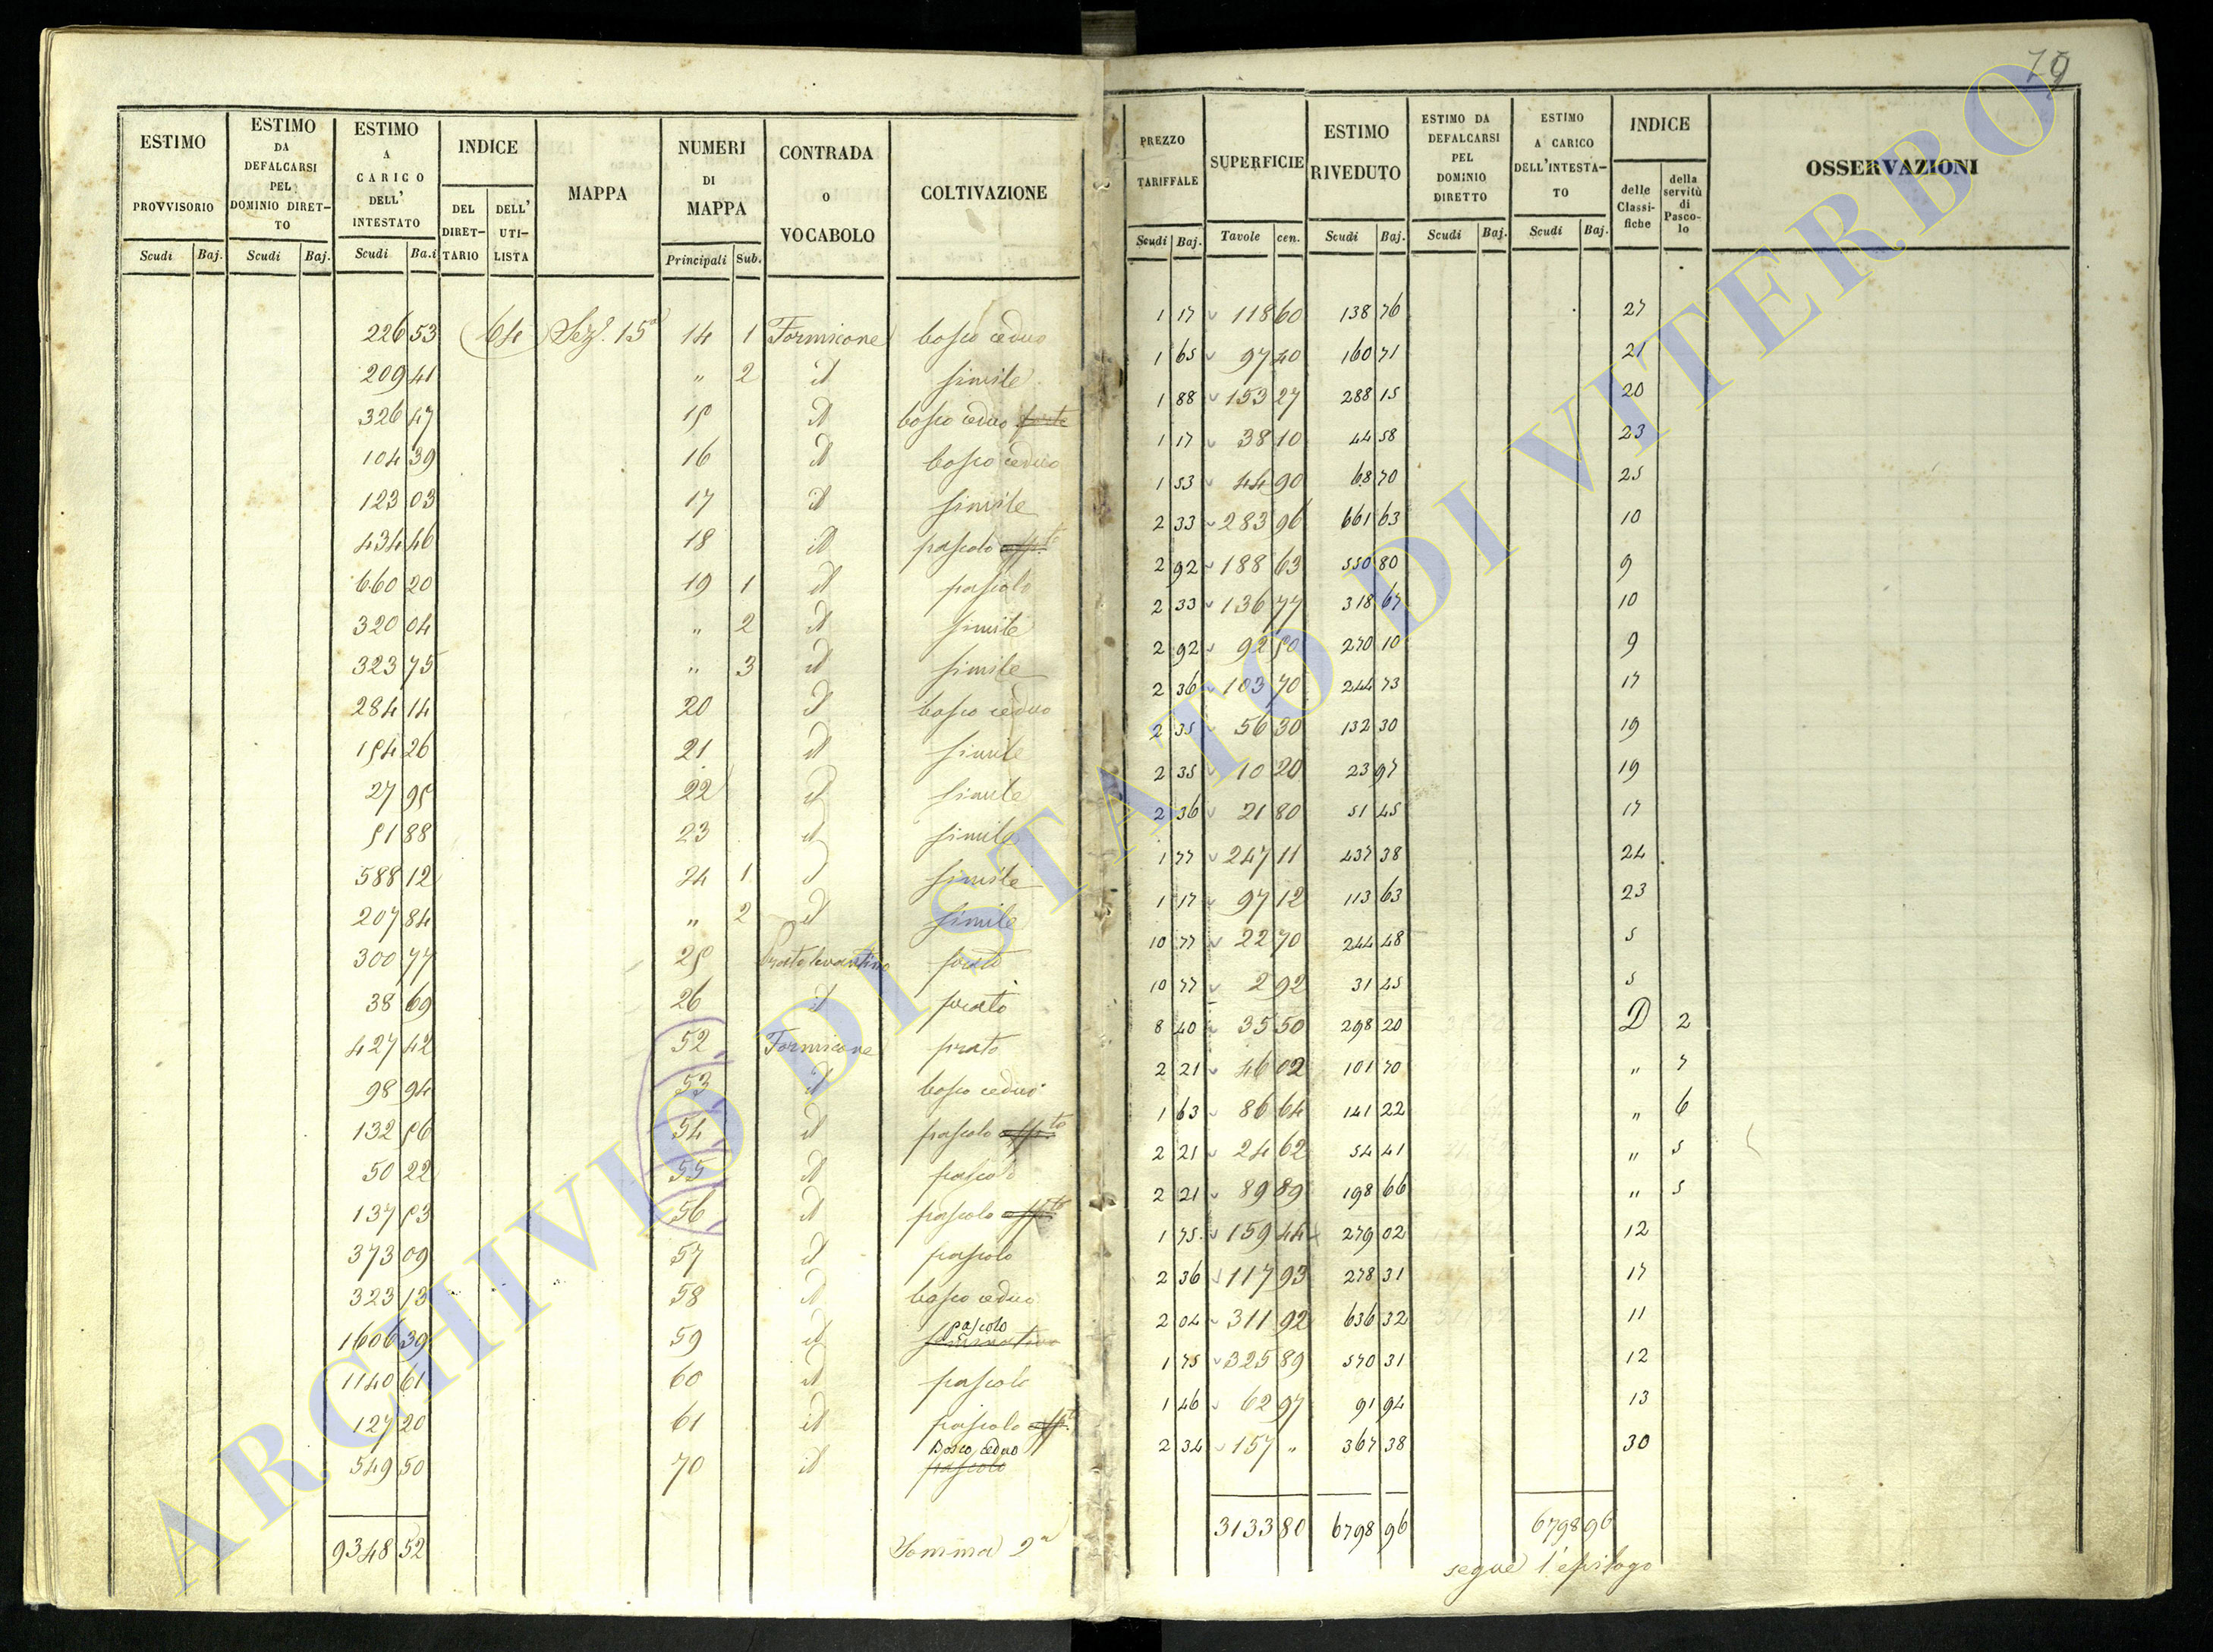 79
ESTIMO PROVVISORIO Scudi Baj.
ESTIMO DA DEFALCARSI PEL DOMINIO DIRETTO Scudi Baj.
ESTIMO A CARICO DELL' INTESTATO Scudi Ba.i
INDICE DEL DIRETTARIO DELL' UTILISTA
MAPPA
NUMERI DI MAPPA Principali Sub.
CONTRADA O VOCABOLO
COLTIVAZIONE
PREZZO TARIFFALE Scudi Baj.
SUPERFICIE Tavole cen.
ESTIMO RIVEDUTO Scudi Baj.
ESTIMO DA DEFALCARSI PEL DOMINIO DIRETTO Scudi Baj.
ESTIMO A CARICO DELL'INTESTATO Scudi Baj.
INDICE delle Classifiche della servitù di Pascolo
OSSERVAZIONI
226 53 64 Sez. 15a 14 1 Formicone bosco ceduo 1 17 118 60 138 76 27
209 41 " 2 id simile 1 65 97 40 160 71 21
326 47 15 id bosco ceduo forte 1 88 153 27 288 15 20
104 39 16 id bosco ceduo 1 17 38 10 44 58 23
123 03 17 id simile 1 53 44 90 68 70 25
434 46 18 id pascolo 2 33 283 96 661 63 10
660 20 19 1 id pascolo 2 92 188 63 550 80 9
320 04 " 2 id simile 2 33 136 77 318 67 10
323 75 " 3 id simile 2 92 92 50 270 10 9
284 14 20 id bosco ceduo 2 36 103 70 244 73 17
154 26 21 id simile 2 35 56 30 132 30 19
27 95 22 id simile 2 35 10 20 23 97 19
51 88 23 id simile 2 36 21 80 51 45 17
588 12 24 1 id simile 1 77 247 11 437 38 24
207 84 " 2 id simile 1 17 97 12 113 63 23
300 77 25 Prato levantino prato 10 77 22 70 244 48 5
38 69 26 id prato 10 77 2 92 31 45 5
427 42 52 Formicone prato 8 40 35 50 298 20 D 2
98 94 53 id bosco ceduo 2 21 46 02 101 70 " 7
132 56 54 id pascolo 1 63 86 64 141 22 " 6
50 22 55 id pascolo 2 21 24 62 54 41 " 5
137 53 56 id pascolo 2 21 89 89 198 66 " 5
373 09 57 id pascolo 1 75 159 44 279 02 12
323 13 58 id bosco ceduo 2 36 117 93 278 31 17
1606 39 59 id pascolo seminativo 2 04 311 92 636 32 11
1140 61 60 id pascolo 1 75 325 89 570 31 12
127 20 61 id pascolo 1 46 62 97 91 94 13
549 50 70 id Bosco ceduo pascolo 2 34 157 " 367 38 30
9348 52 Somma 2a 3133 80 6798 96 6798 96
segue l'epilogo
ARCHIVIO DI STATO DI VITERBO